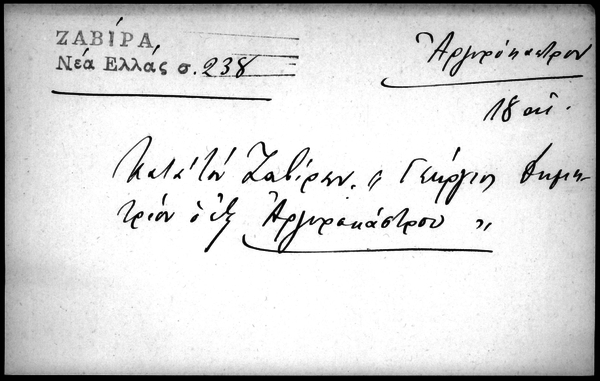 ΖΑΒΙΡΑ,
Νέα Ελλάς σ. 238
Ἀργυρόκαστρον
18 αἰ.
Κατὰ τὸν Ζαβίραν. " Γεώργιος Δημη-
τρίου ὁ ἐξ Ἀργυροκάστρου "